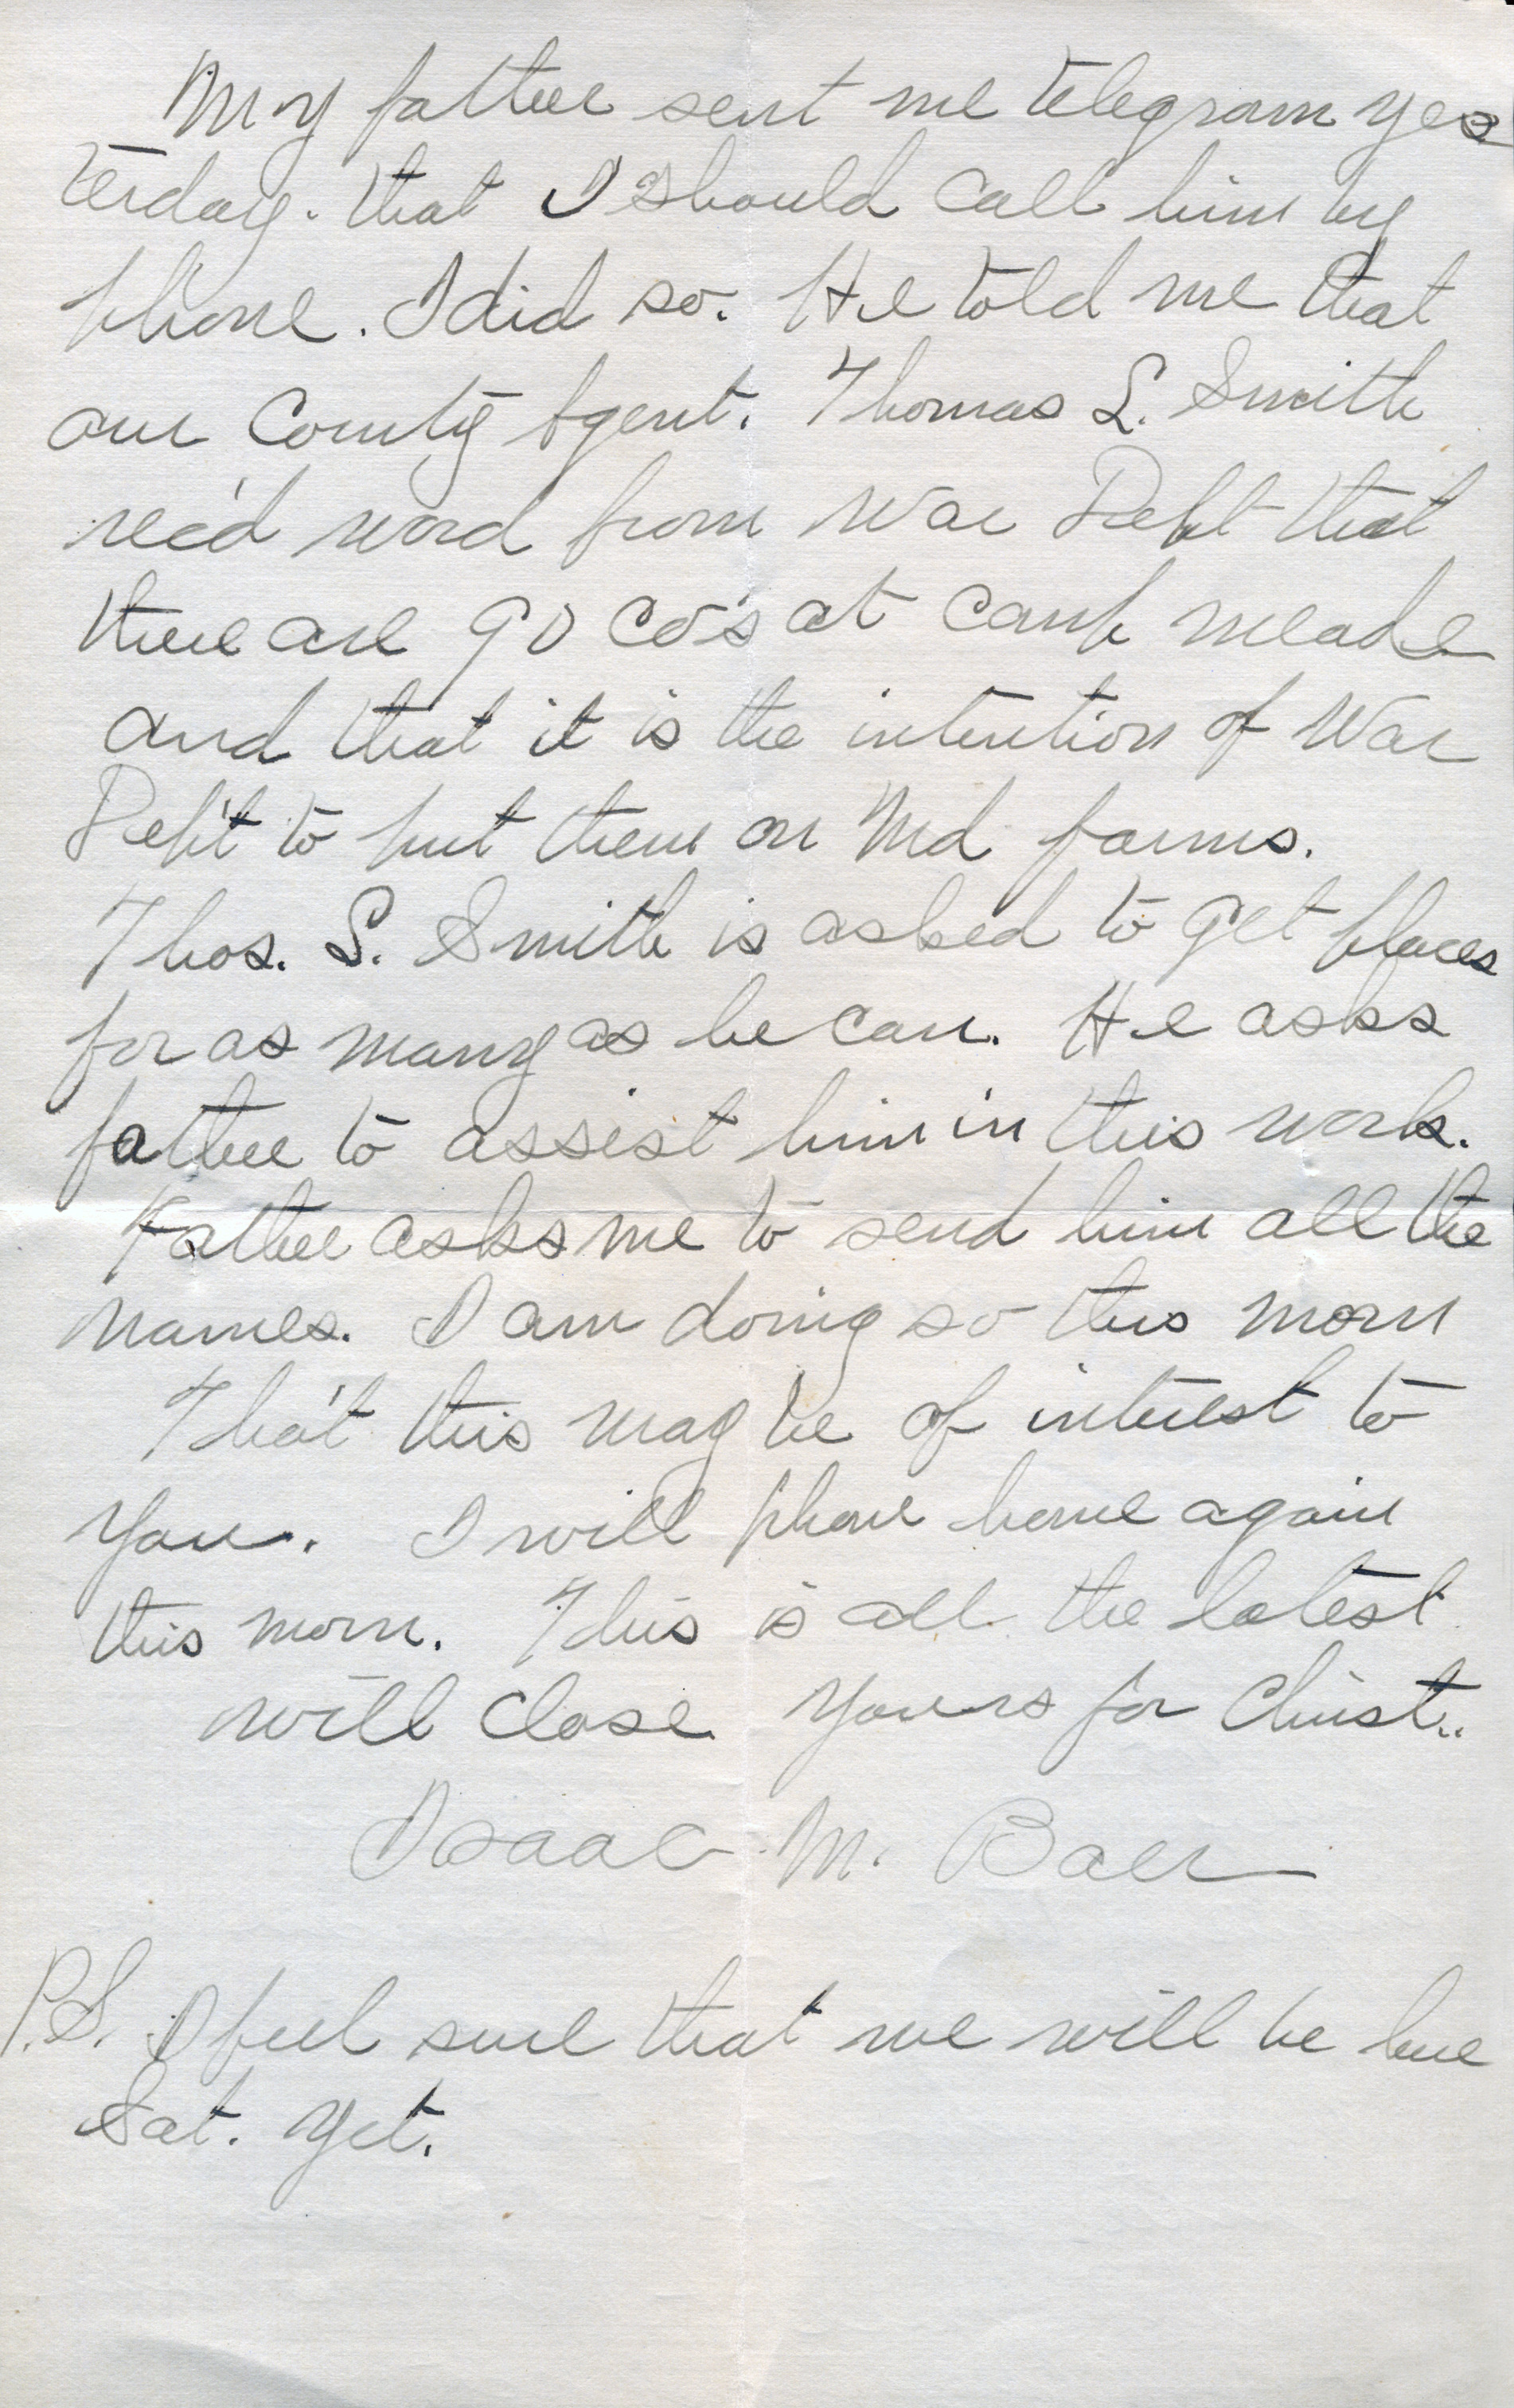 My father sent me telegram yes
terday. that I should call him by
phone. I did so. He told me that
our County Agent. Thomas L. Smith
rec'd word from War Dept that
there are 90 Co's at Camp Meade
and that it is the intention of War
Dep't to put them on Md farms.
Thos. L. Smith is asked to get places
for as many as he can. He asks
father to assist him in this work.
Father asks me to send him all the
names. I am doing so this morn
Tho't this may be of interest to
you. I will phone home again
this morn. This is all the latest
will close Yours for Christ..
Isaac M. Baer
P.S. I feel sure that we will be here
Sat. yet.